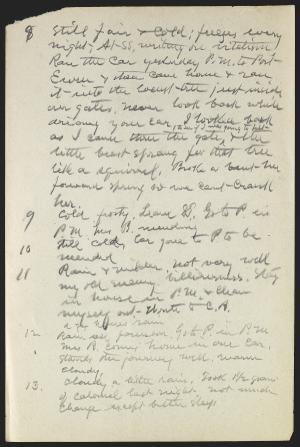 8 Still fair & cold; freezes every
night; At 55, writing on kitchen
Ran the car yesterday P.M. to Port-
& then came home & ran
it into the locust tree just inside
our gates, never look back while
driving your car, I looked back
as I came thro the gate, & the
little beast sprang for that tree
like a squirrel, Broke or bent the
forward spring so we cant crank
her.
9 Cold, frosty, Leave D, Go to P in
P.M. Mrs B. mending
10 Still cold, Car goes to P to be
mended
11 Rain & milder, not very well
my old enemy biliousness. Stay
in house in P.M. & clean
myself out. Wrote to C.A.
12 Rain all forenoon. Go to P in P.M
Mrs B. coming home in our car.
Stands the journey well, warm
cloudy
13. Cloudy, a little rain. Took 1/2 grain
of calomel last night, not much
change except better sleep